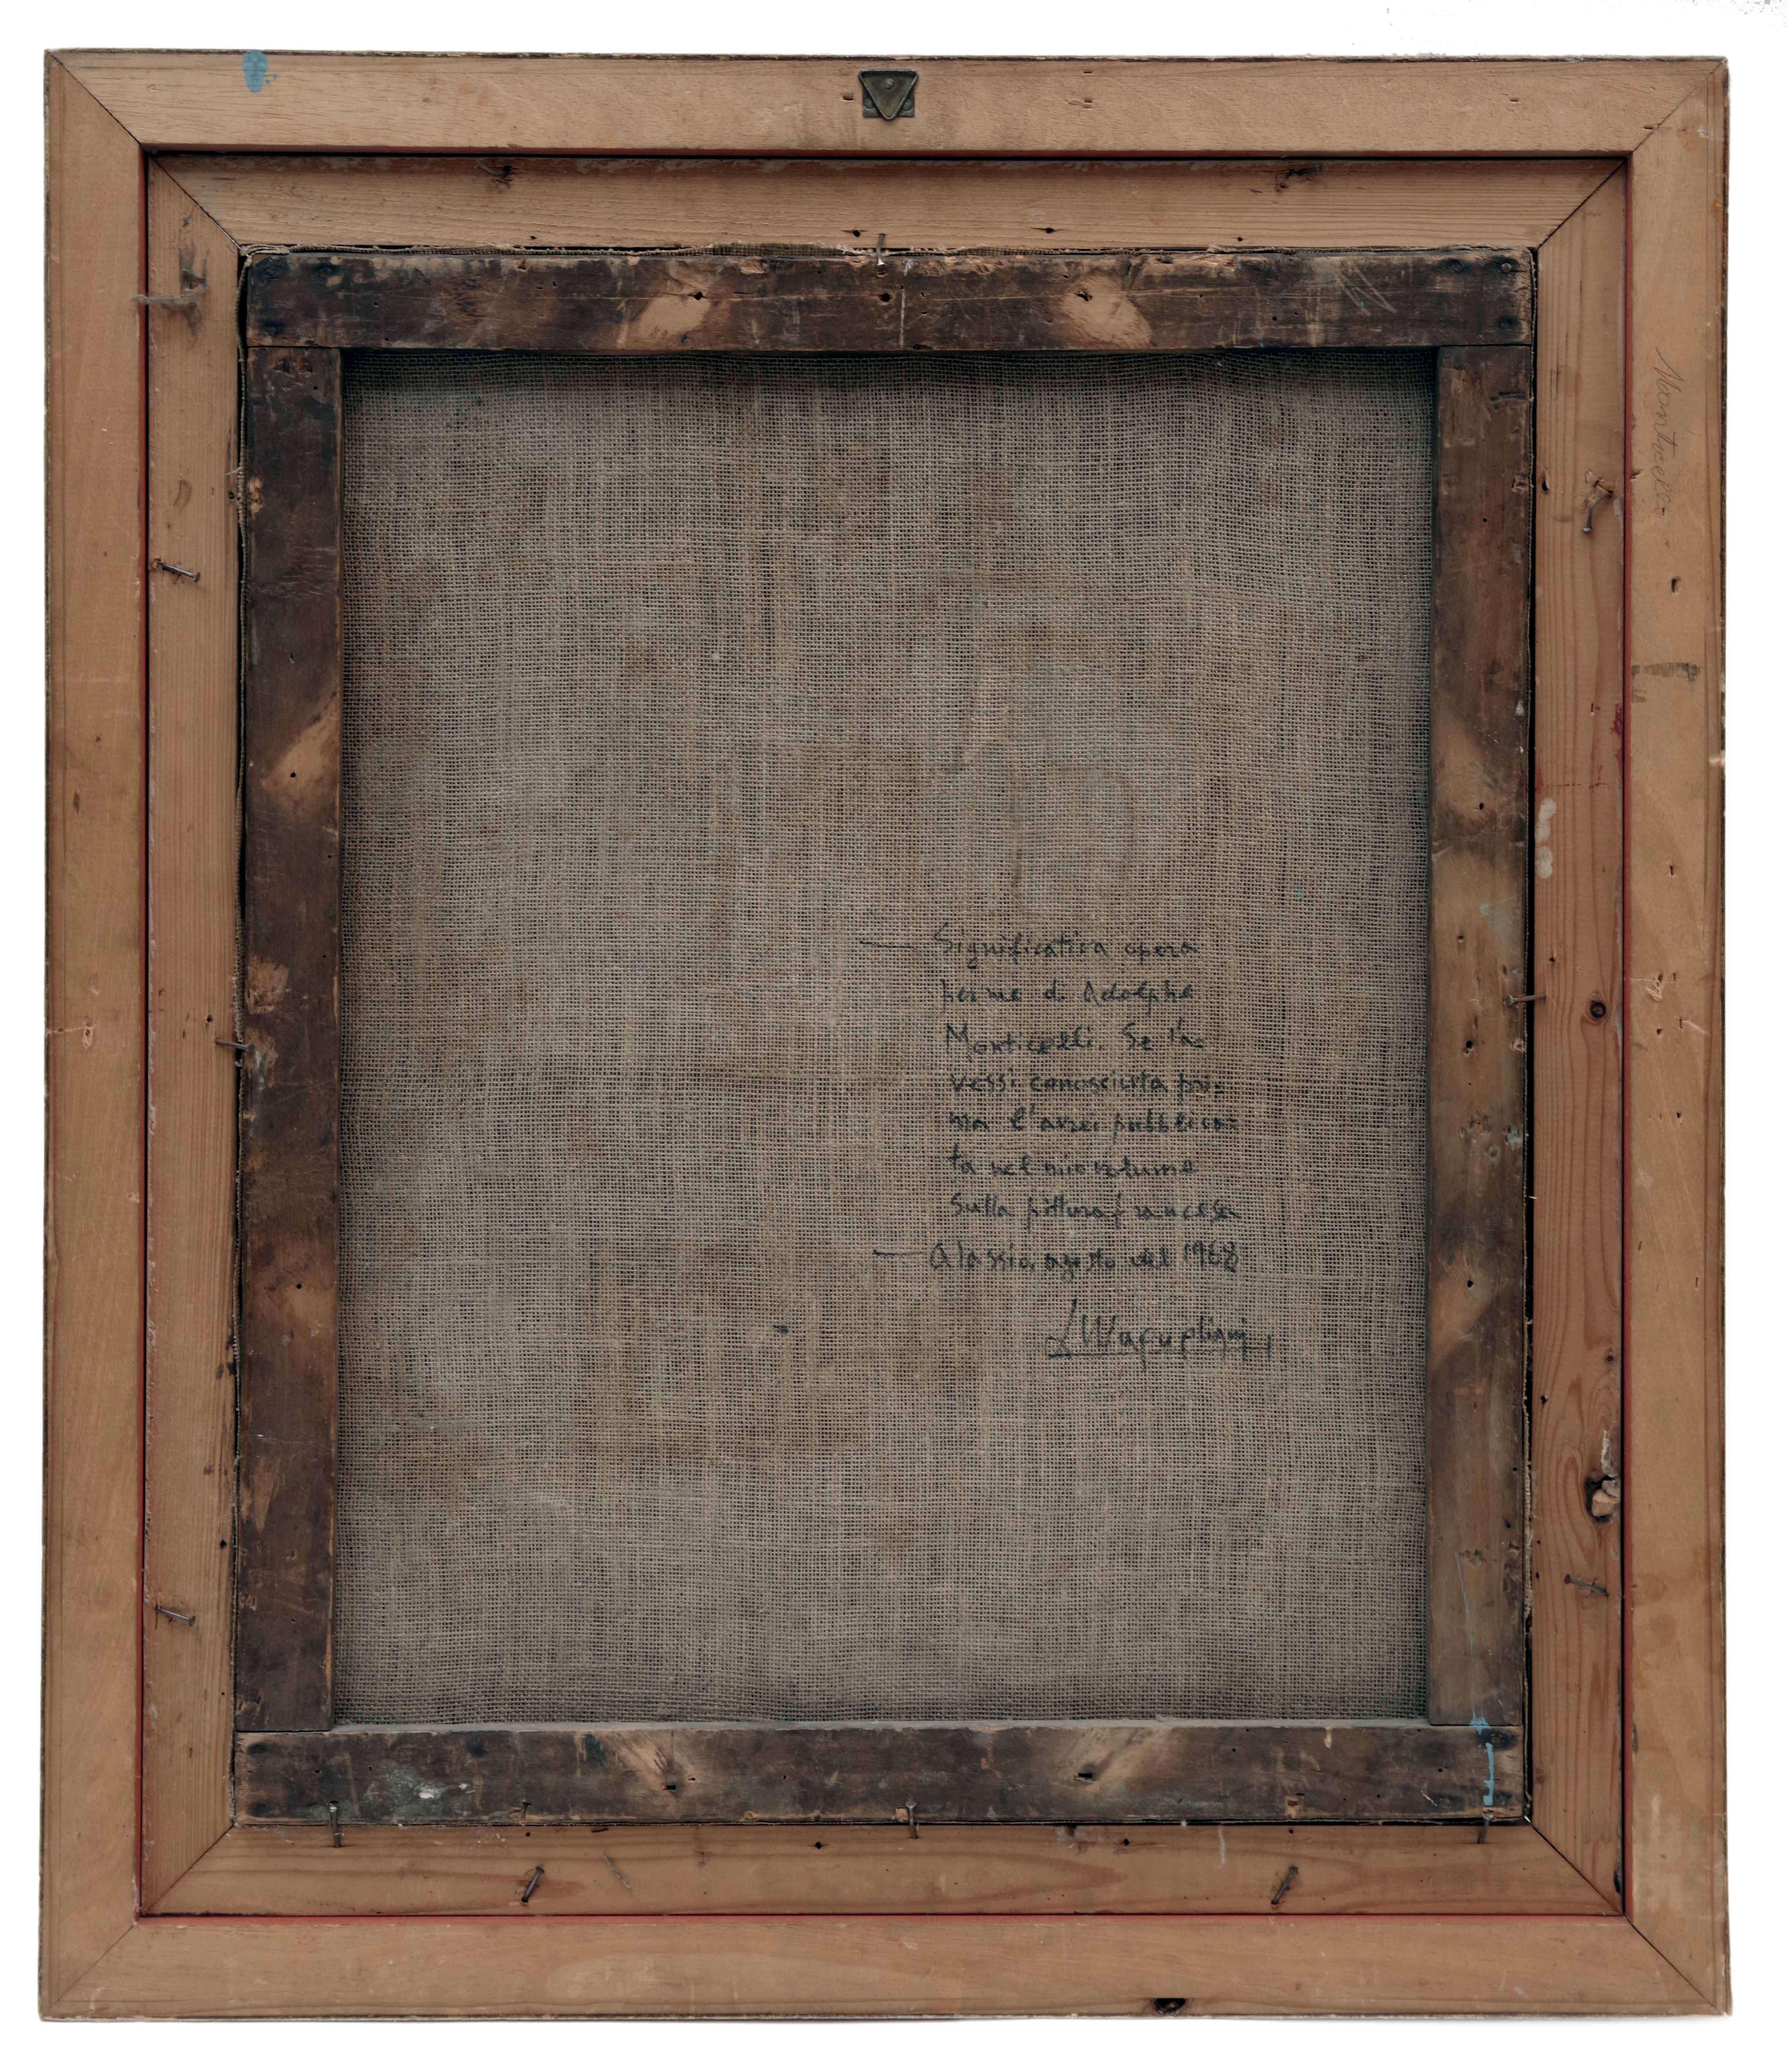 Monticelli
— Significativa opera
per me di Adolphe
Monticelli. Se l'a=
vessi conosciuta pri=
ma l'avrei pubblica=
ta nel mio volume
sulla pittura francese
— Alassio, agosto del 1968